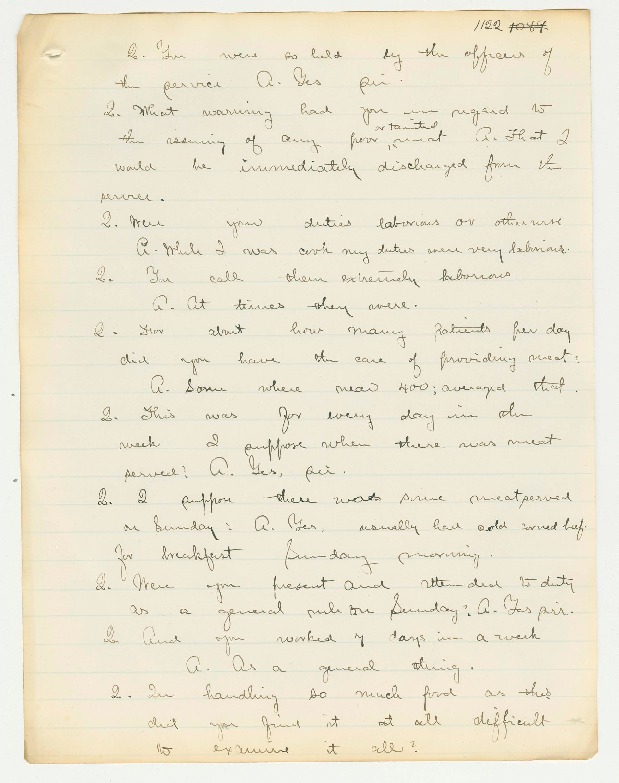 1122 1044
Q. You were so held by the officers of
the service A. Yes sir.
Q. What warning had you in regard to
or tainted
the issuing of any poor, meat A. That I
would be immediately discharged from the
service.
Q. Were your duties laborious or otherwise
A. While I was cook my duties were very laborious.
Q. You call them extremely laborious
A. At times they were.
Q. For about how many patients per day
did you have the care of providing meat?
A. Some where near 400; averaged that.
Q. This was for every day in the
week I suppose when there was meat
served? A. Yes, sir.
Q. I suppose there was some meat served
on Sunday? A. Yes. usually had cold corned beef
for breakfast Sunday morning.
Q. Were you present and attended to duty
as a general rule on Sunday? A. Yes sir.
Q. And you worked 7 days in a week
A. As a general thing.
Q. In handling so much food as this
did you find it at all difficult
to examine it all?